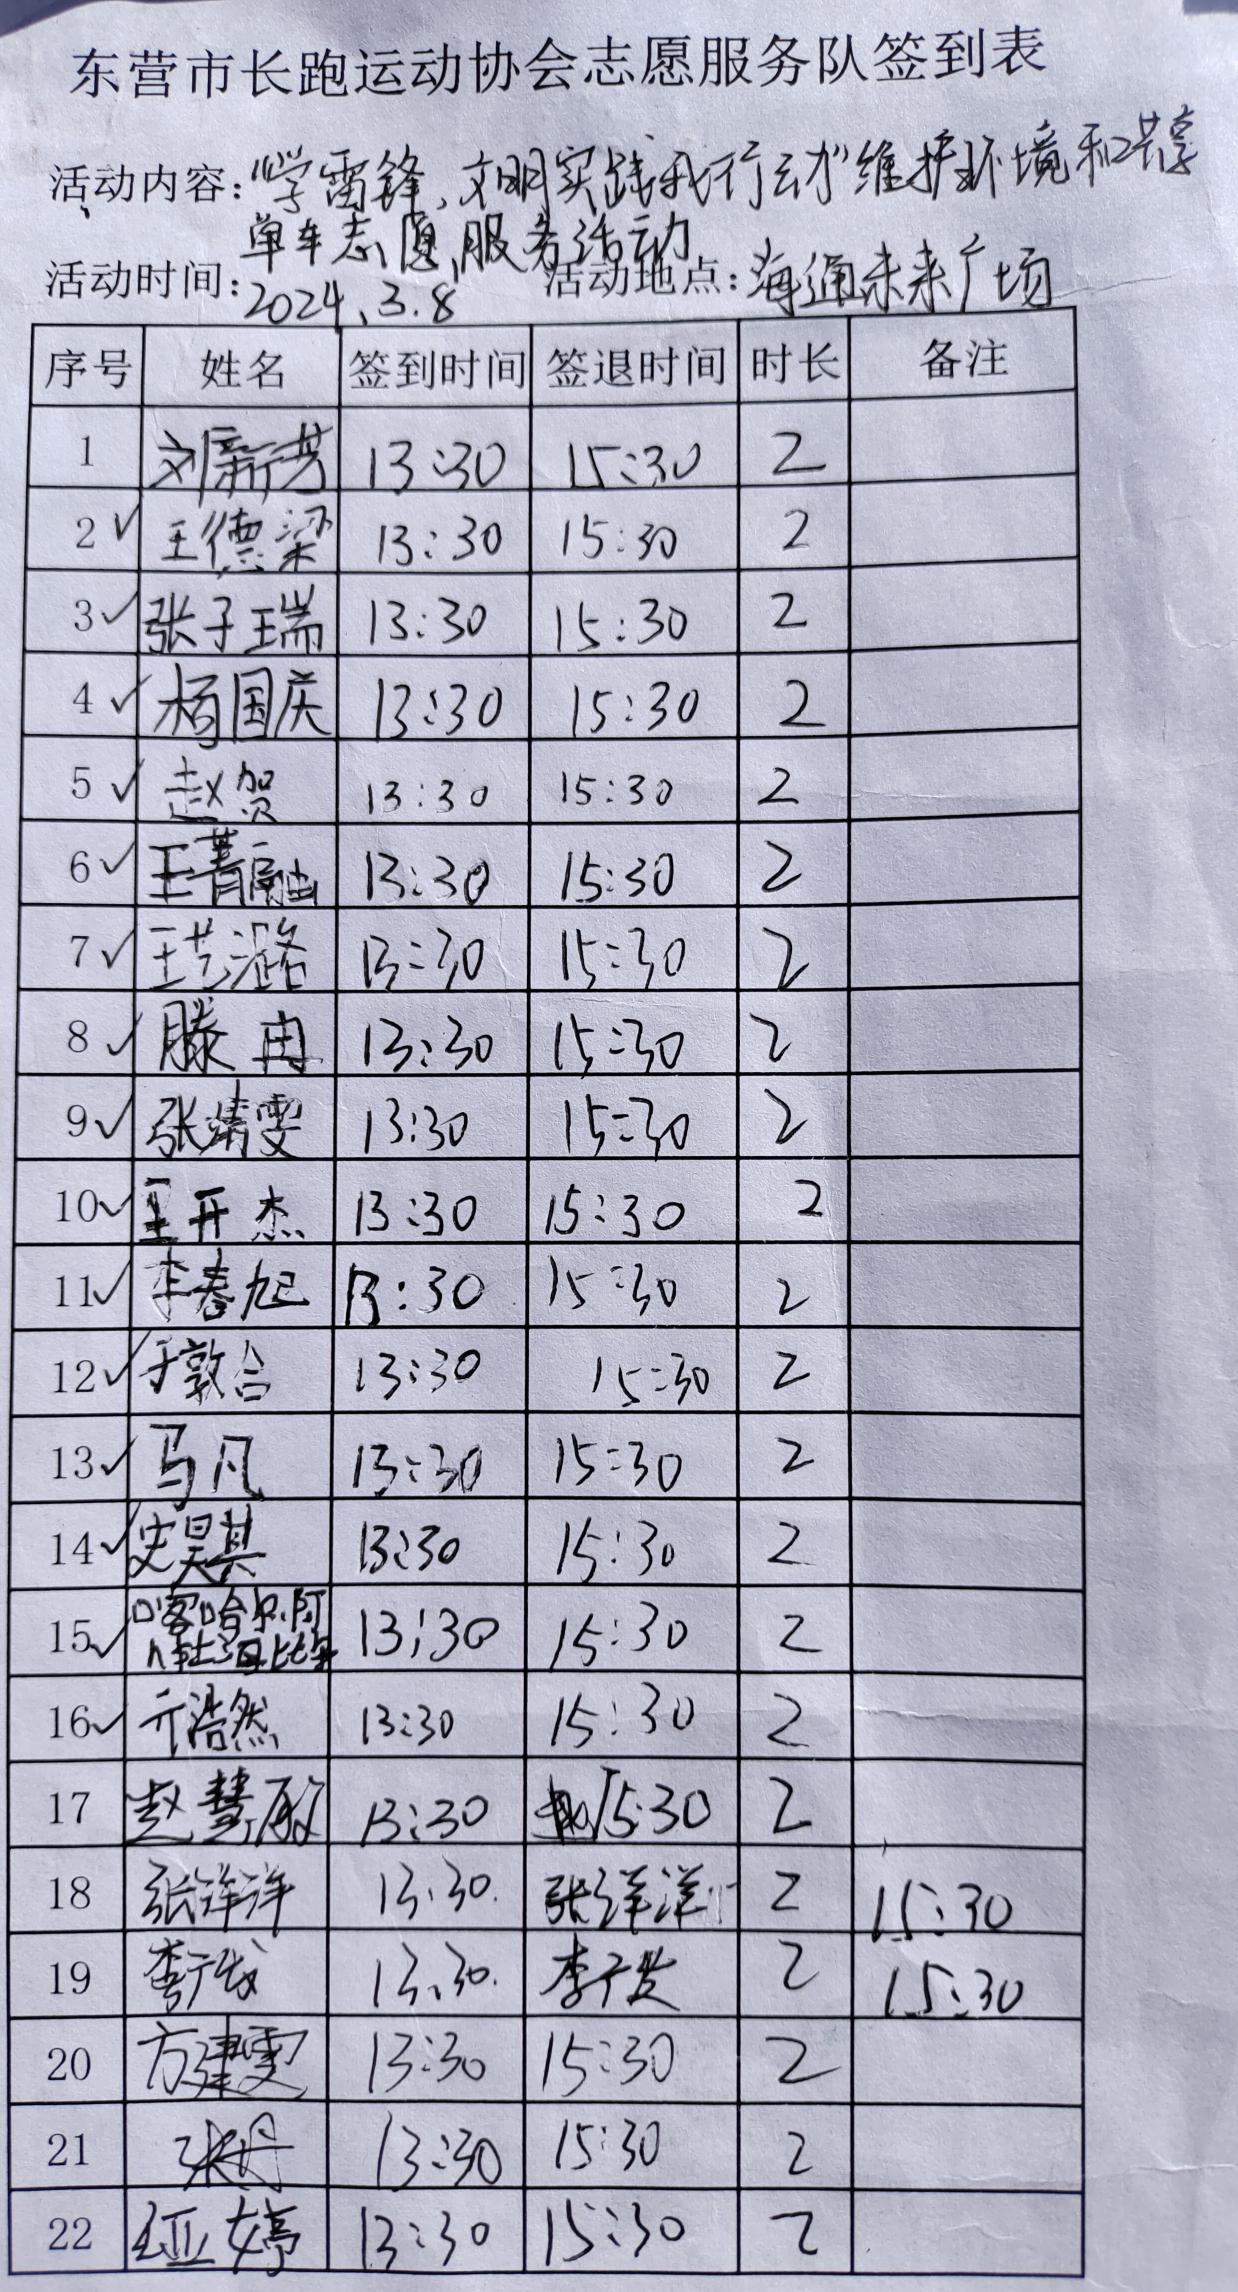 东营市长跑运动协会志愿服务队签到表
活动内容:“学雷锋、文明实践我行动”维护环境和共享
单车志愿服务活动
活动时间:2024、3.8 活动地点:海通未来广场
序号 姓名 签到时间 签退时间 时长 备注
1 刘新芳 13:30 15:30 2
2 ✓ 王德梁 13:30 15:30 2
3 ✓ 张子瑞 13:30 15:30 2
4 ✓ 杨国庆 13:30 15:30 2
5 ✓ 赵贺 13:30 15:30 2
6 ✓ 王菁 13:30 15:30 2
7 ✓ 王艺潞 13:30 15:30 2
8 ✓ 滕冉 13:30 15:30 2
9 ✓ 张靖雯 13:30 15:30 2
10 ✓ 王开杰 13:30 15:30 2
11 ✓ 李春旭 13:30 15:30 2
12 ✓ 于敦合 13:30 15:30 2
13 ✓ 马凡 13:30 15:30 2
14 ✓ 史昊其 13:30 15:30 2
15 ✓ 喀哈尔·阿 13:30 15:30 2
16 ✓ 亓浩然 13:30 15:30 2
17 赵慧敏 13:30 15:30 2
18 张洋洋 13:30. 张洋洋 2 15:30
19 李广发 13:30. 李广发 2 15:30
20 方建雯 13:30 15:30 2
21 张丹 13:30 15:30 2
22 亚婷 13:30 15:30 2